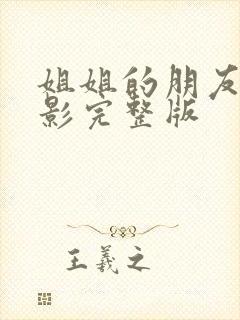 姐姐的朋友
影完整版
王羲之